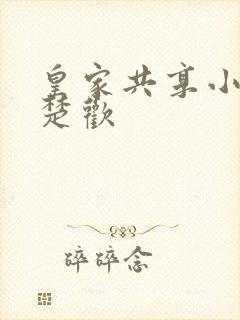 皇家共享小
楚歡
碎碎念